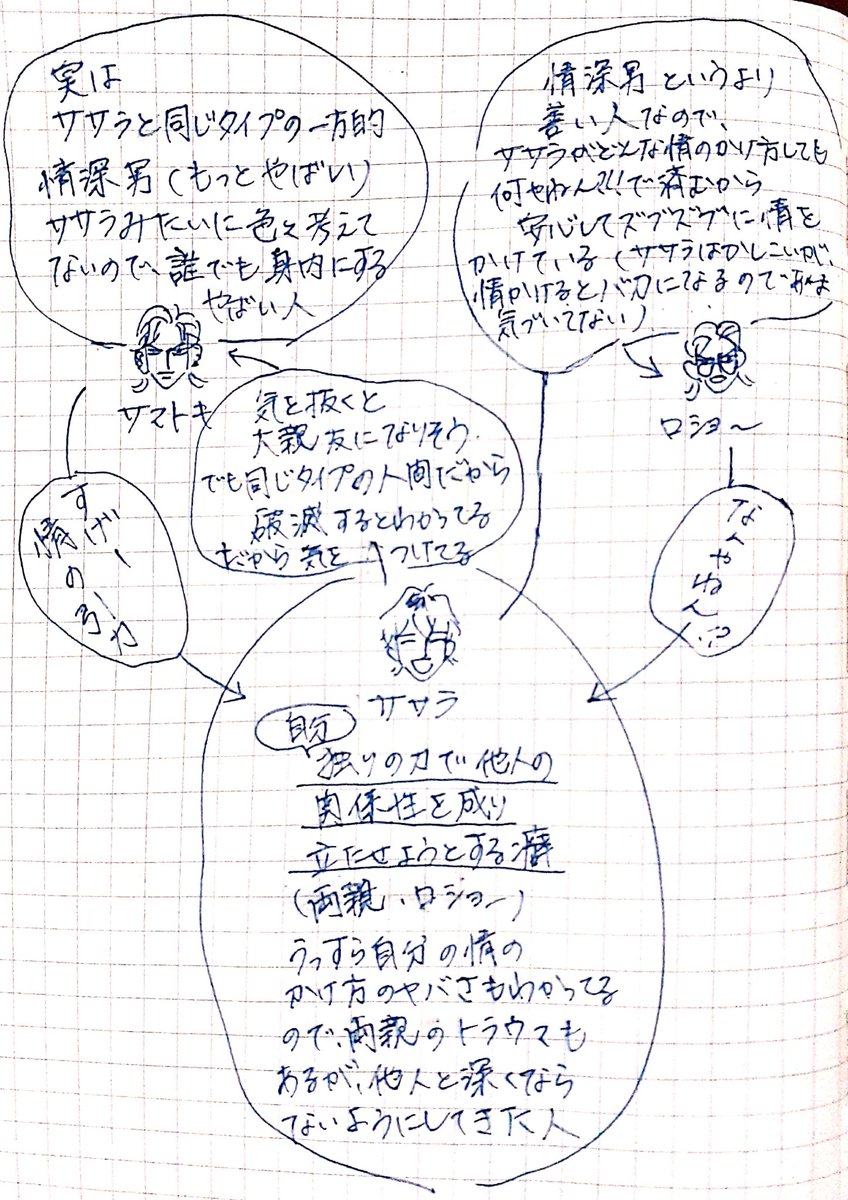 実は
ササラと同じタイプの一方的
情深男(もっとやばい)
ササラみたいに色々考えて
ないので、誰でも身内にする
やばい人
サマトキ
情深男というより
善い人なので、
ササラがどんな情のかけ方しても
何やねん?!!で済むから
安心してズブズブに情を
かけている(ササラはかしこいが、
情かけるとバカになるのであんま
気づいてない)
ロショー
気を抜くと
大親友になりそう。
でも同じタイプの人間だから
破滅するとわかってる
だから気をつけてる
すげー
情の
なんやねん!?
ササラ
自分
独りの力で他人の
関係性を成り
立たせようとする癖
(両親、ロショー)
うっすら自分の情の
かけ方のヤバさもわかってる
ので、両親のトラウマも
あるが、他人と深くなら
ないようにしてきた人